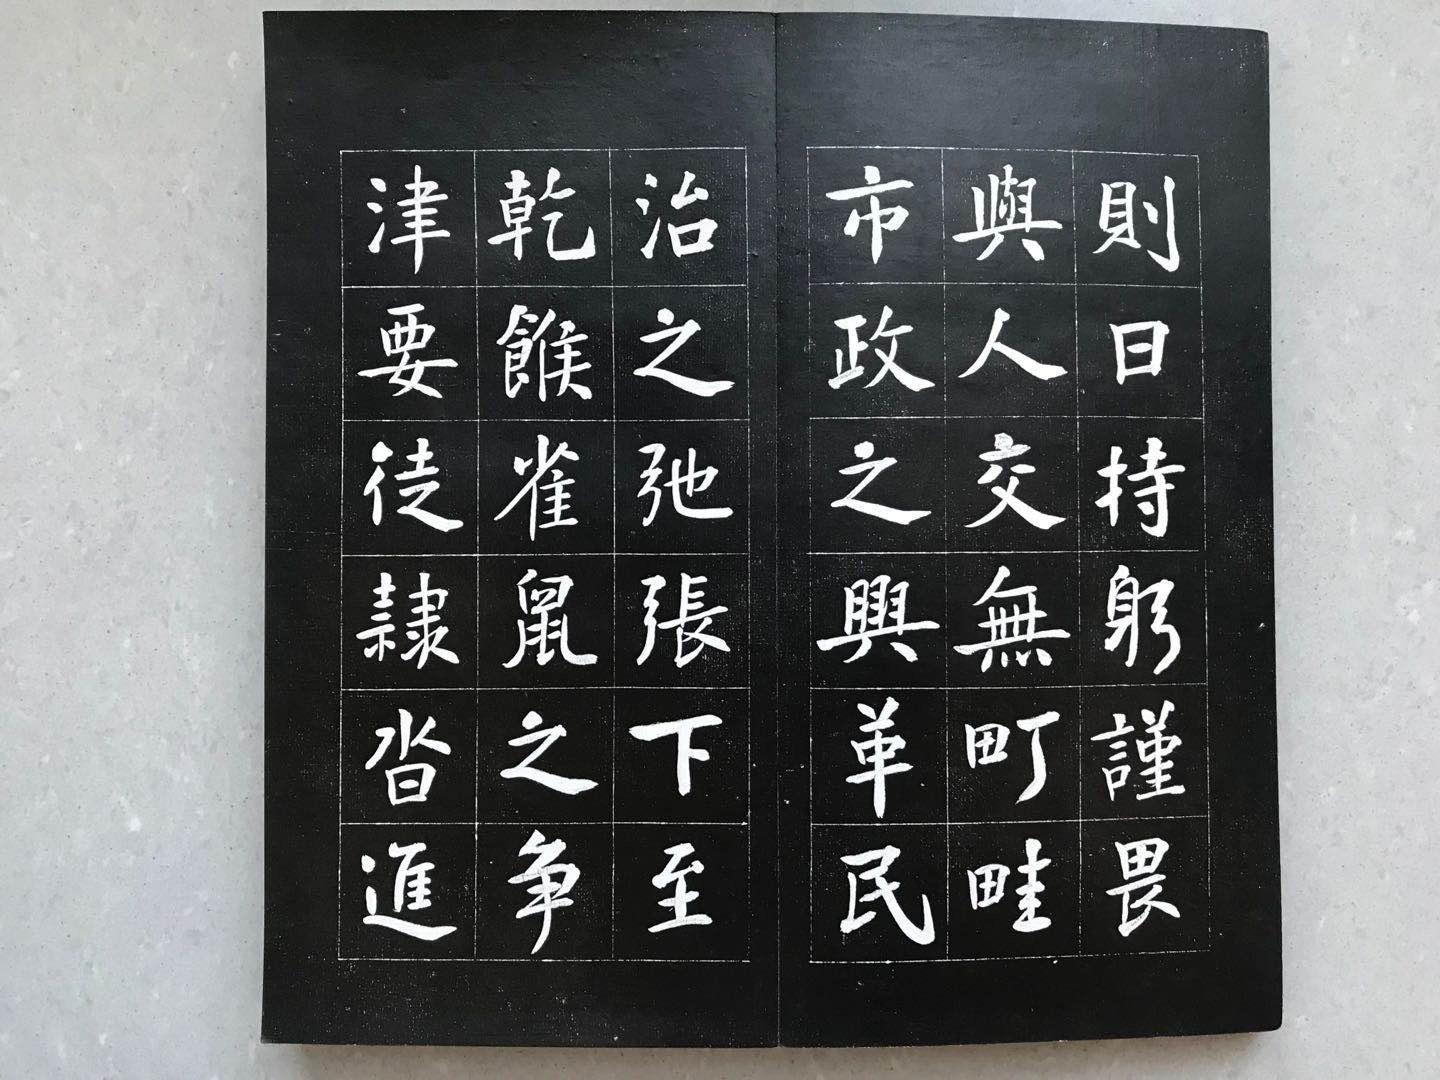 則日持躬謹畏
與人交無町畦
市政之興革民
治之弛張下至
乾餱雀鼠之争
津要徒隷沓進